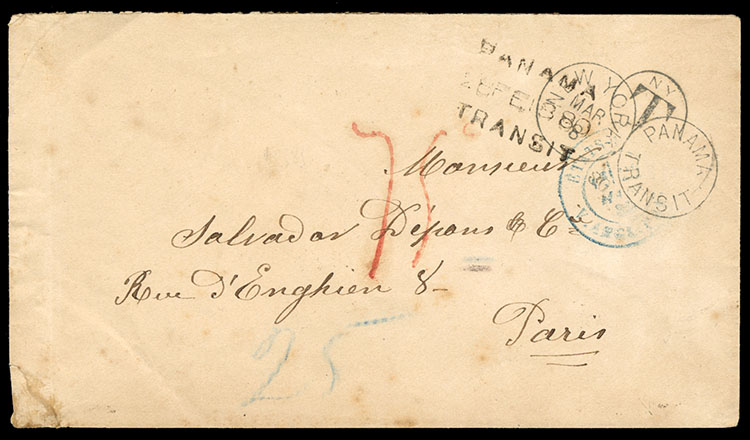 PANAMA
TRANSIT
NEW YORK
MAR
NY
T
PANAMA
TRANSIT
75
Monsieur
Salvador Dépons & Cie
Rue d'Enghien 8
Paris
25